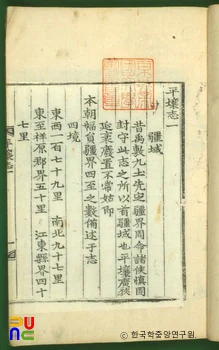 平壤志一
疆域
昔禹敷九土先定疆界周命諸侯愼固
封守此志之所以首疆域也平壤廣狹
延袤廢置不常姑
本朝幅員疆界四至之數備述于志
四境
東西一百七十九里 南北九十七里
東至祥原郡界五十里 江東縣界四十
七里
한국학중앙연구원